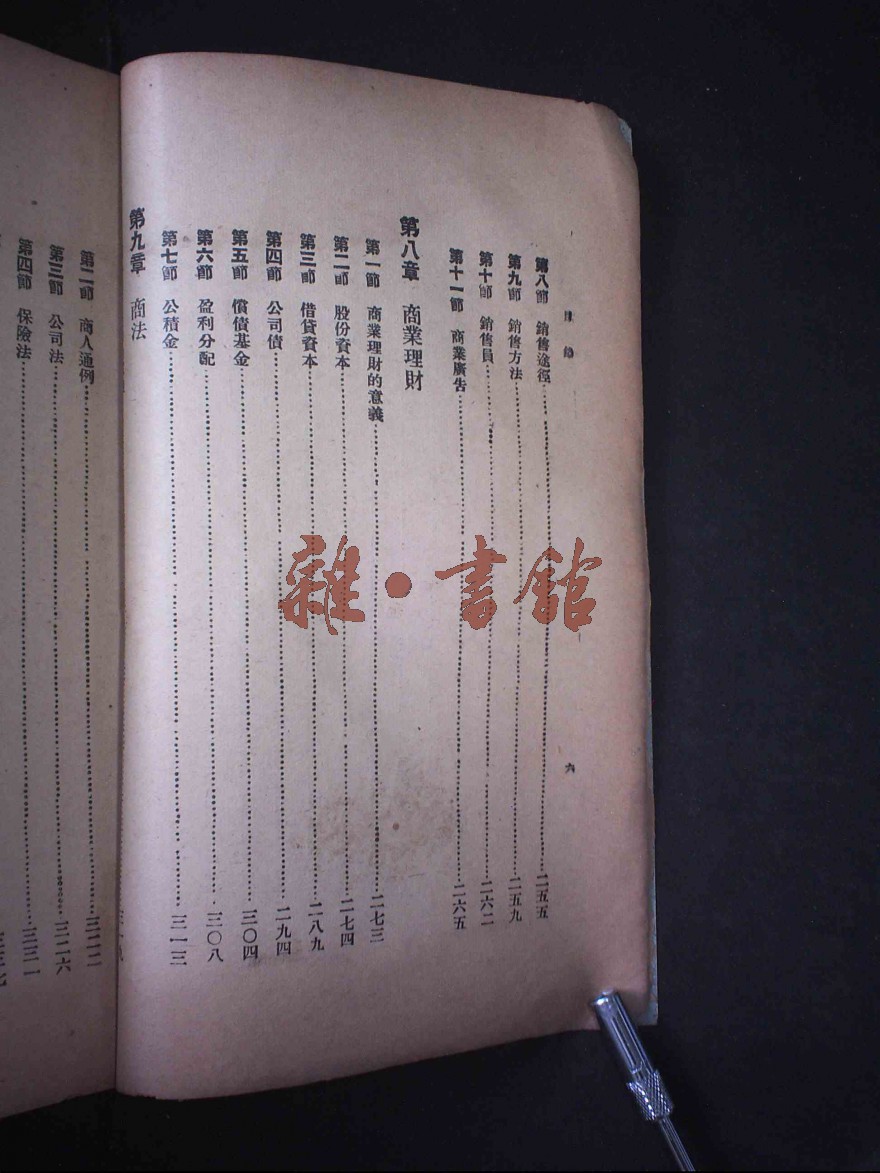 目錄
六
第八節 銷售途徑 二五五
第九節 銷售方法 二五九
第十節 銷售員 二六二
第十一節 商業廣告 二六五
第八章 商業理財
第一節 商業理財的意義 二七三
第二節 股份資本 二七四
第三節 借貸資本 二八九
第四節 公司債 二九四
第五節 償債基金 三〇四
第六節 盈利分配 三〇八
第七節 公積金 三一三
第九章 商法
第二節 商人通例
第三節 公司法 三二六
第四節 保險法
雜·書館